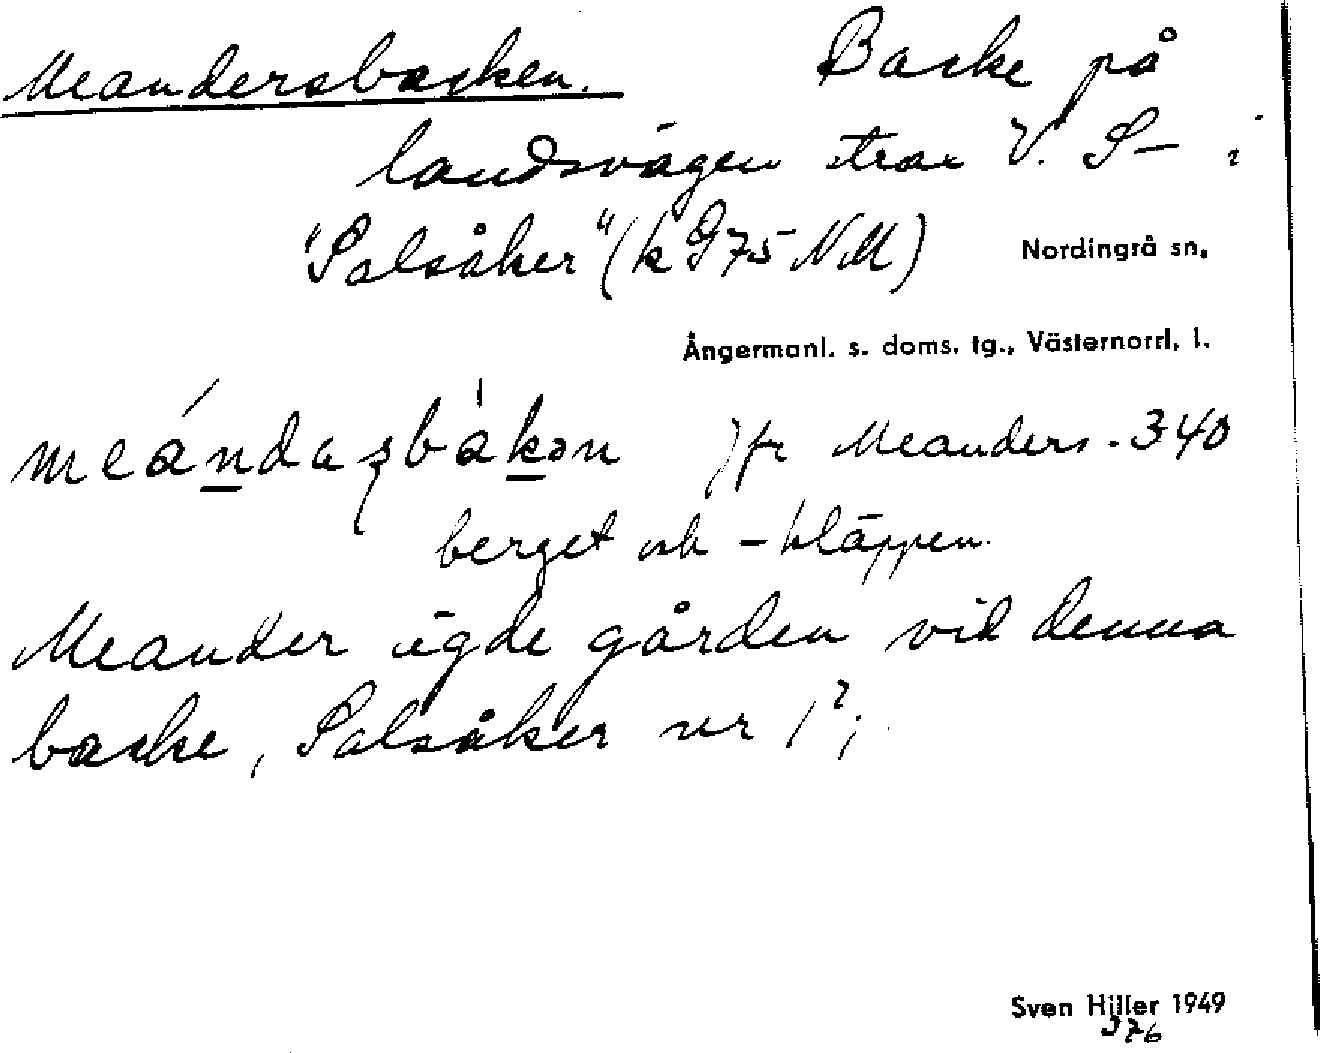 Meandersbacken. Backe på
landsvägen strax V. S– i
"Salsåker" (k G75 NM) Nordingrå sn,
Ångermanl. s. doms. tg., Västernorrl. l.
meándaʂbàkən jfr Meanders- 340
berget och -kläppen.
Meander ägde gården vid denna
backe, Salsåker nr 1?;
Sven Hiller 1949
976